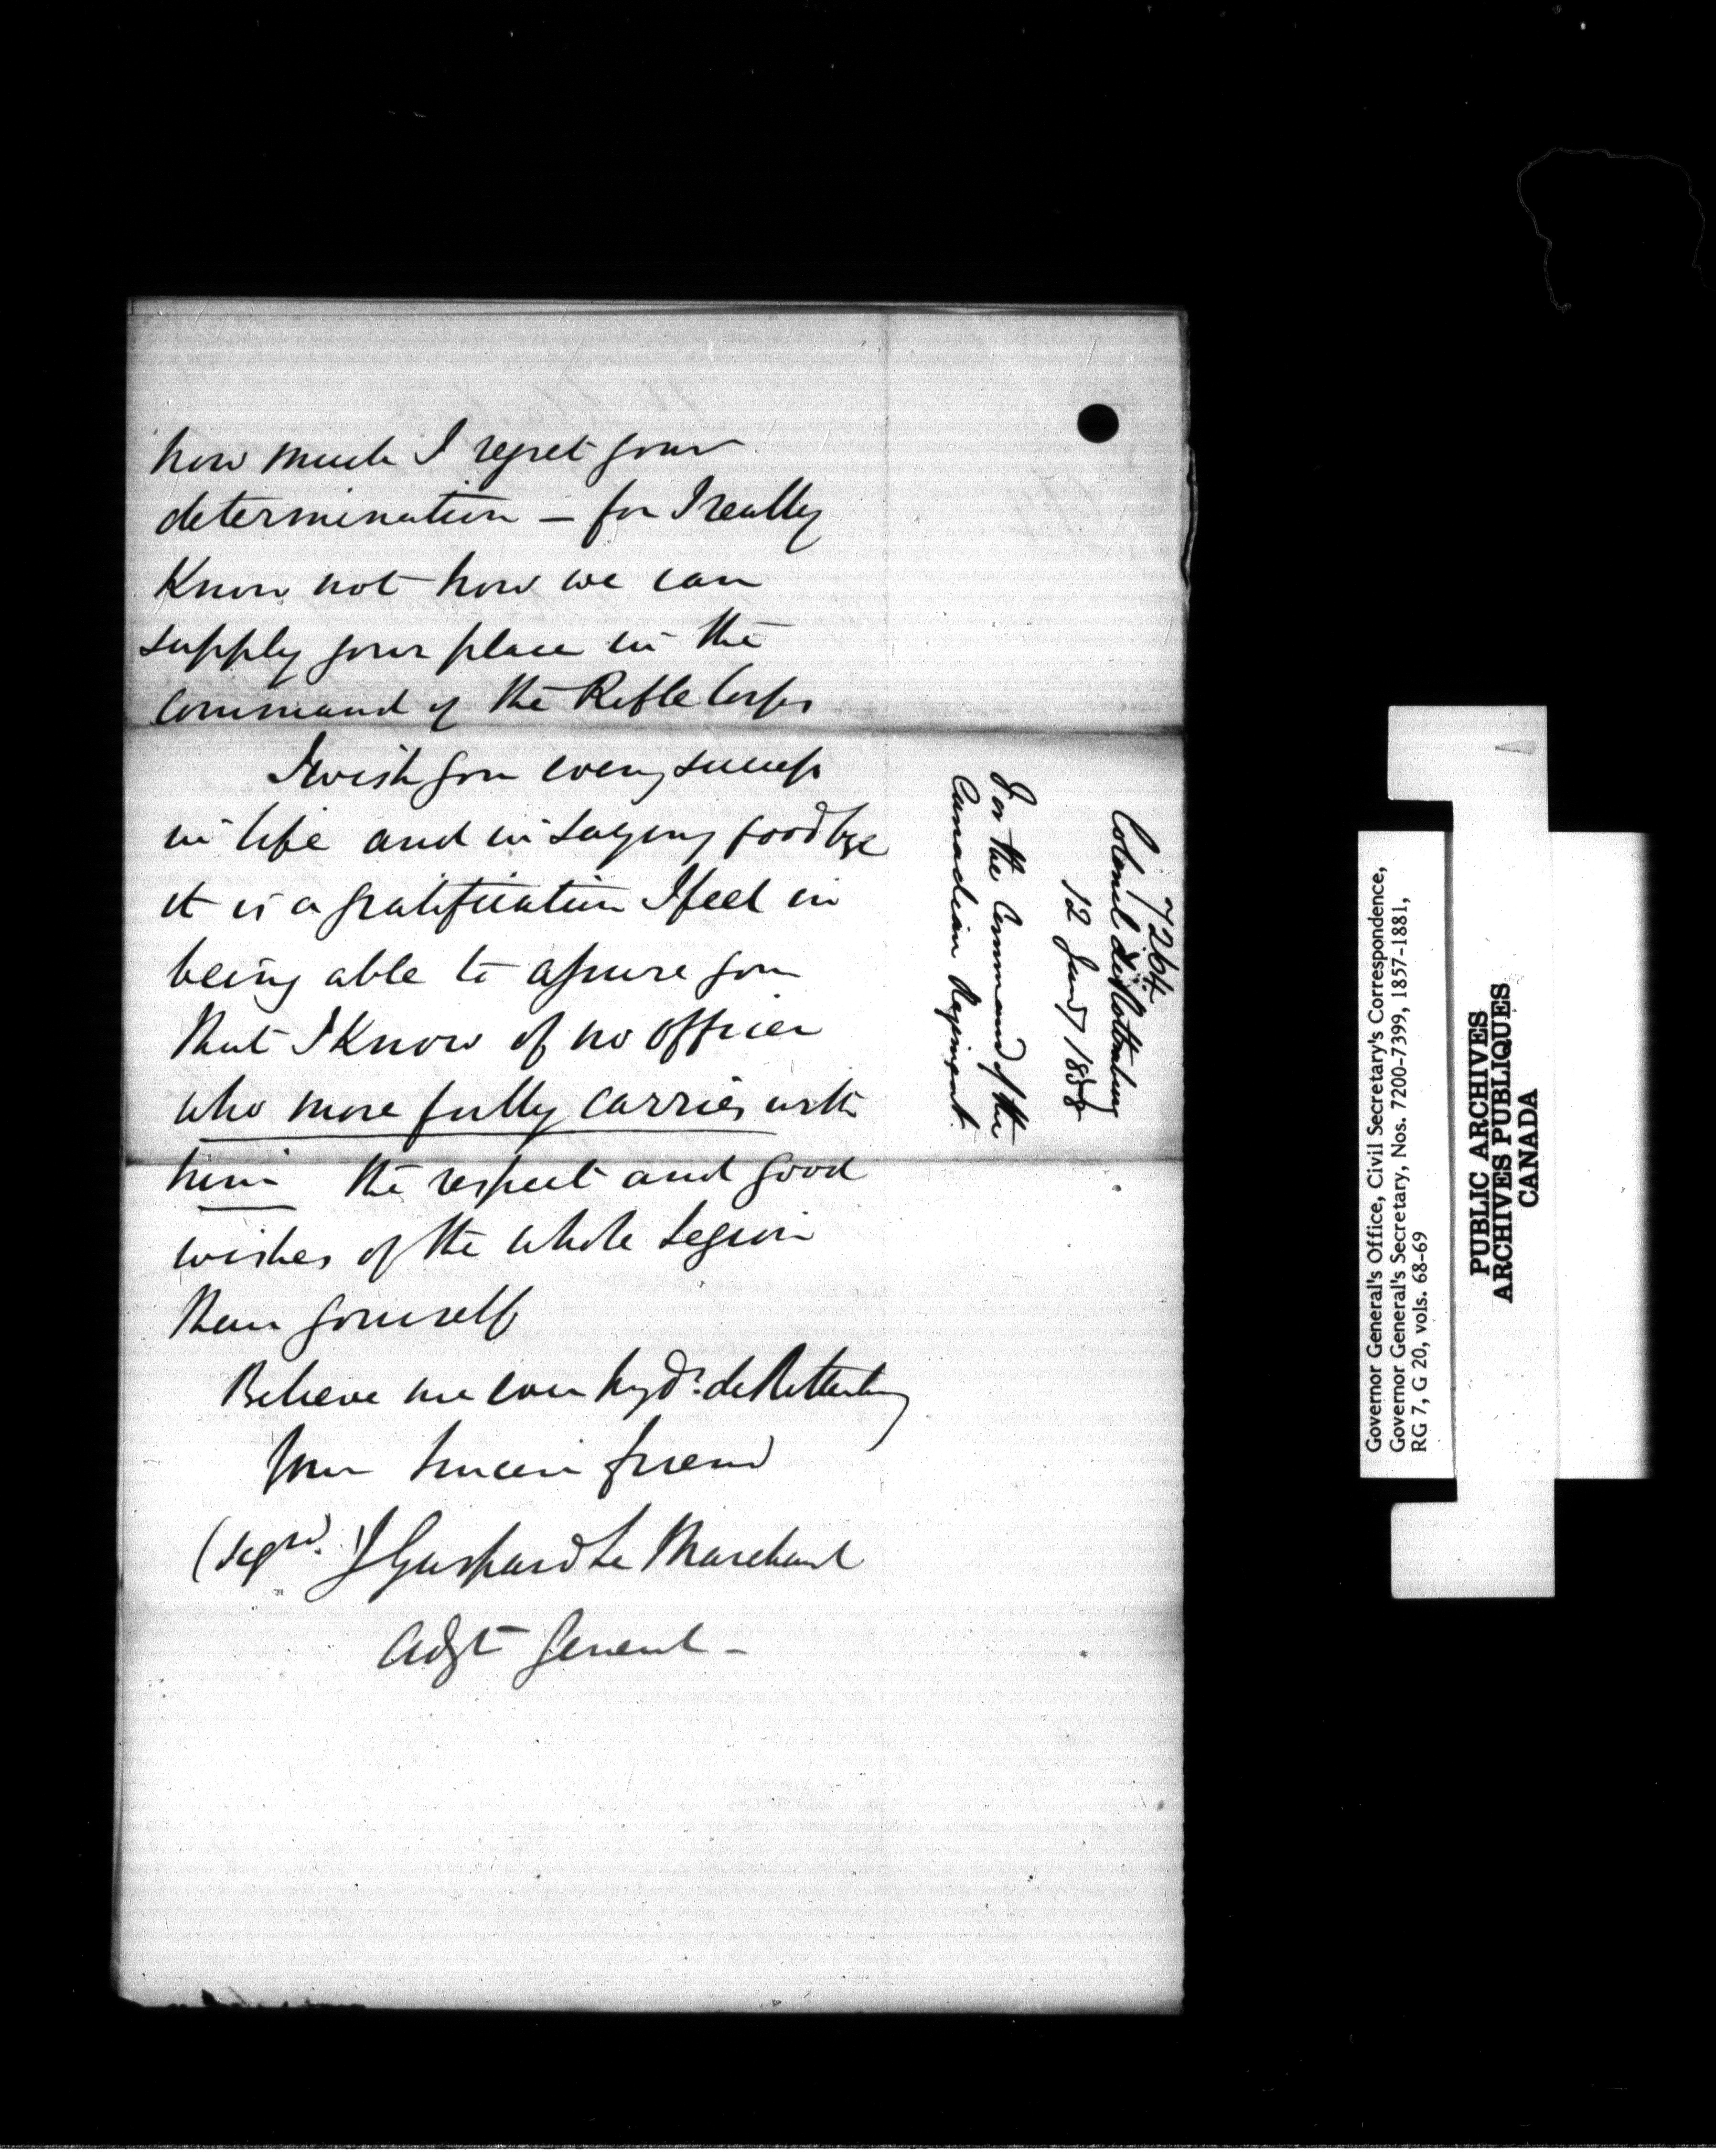 how much I regret your
determination – for I really
Know not how we can
supply your place in the
command of the Rifle Corps
I wish you every success
in life and in saying good bye
it is a gratification I feel in
being able to assure you
that I Know of no officer
who more fully carries with
him the respect and good
wishes of the whole Legion
than yourself
Believe me ever my dr. de Rottenburg
Your sincere friend
(sigd. J Gaspard Le Marchant
Adjt General –
7264
Colonel de Rottenburg
12 Jany 1858
For the Command of the
Canadian Regiment.
Governor General's Office, Civil Secretary's Correspondence,
Governor General's Secretary, Nos. 7200-7399, 1857-1881,
RG 7, G 20, vols. 68-69
PUBLIC ARCHIVES
ARCHIVES PUBLIQUES
CANADA